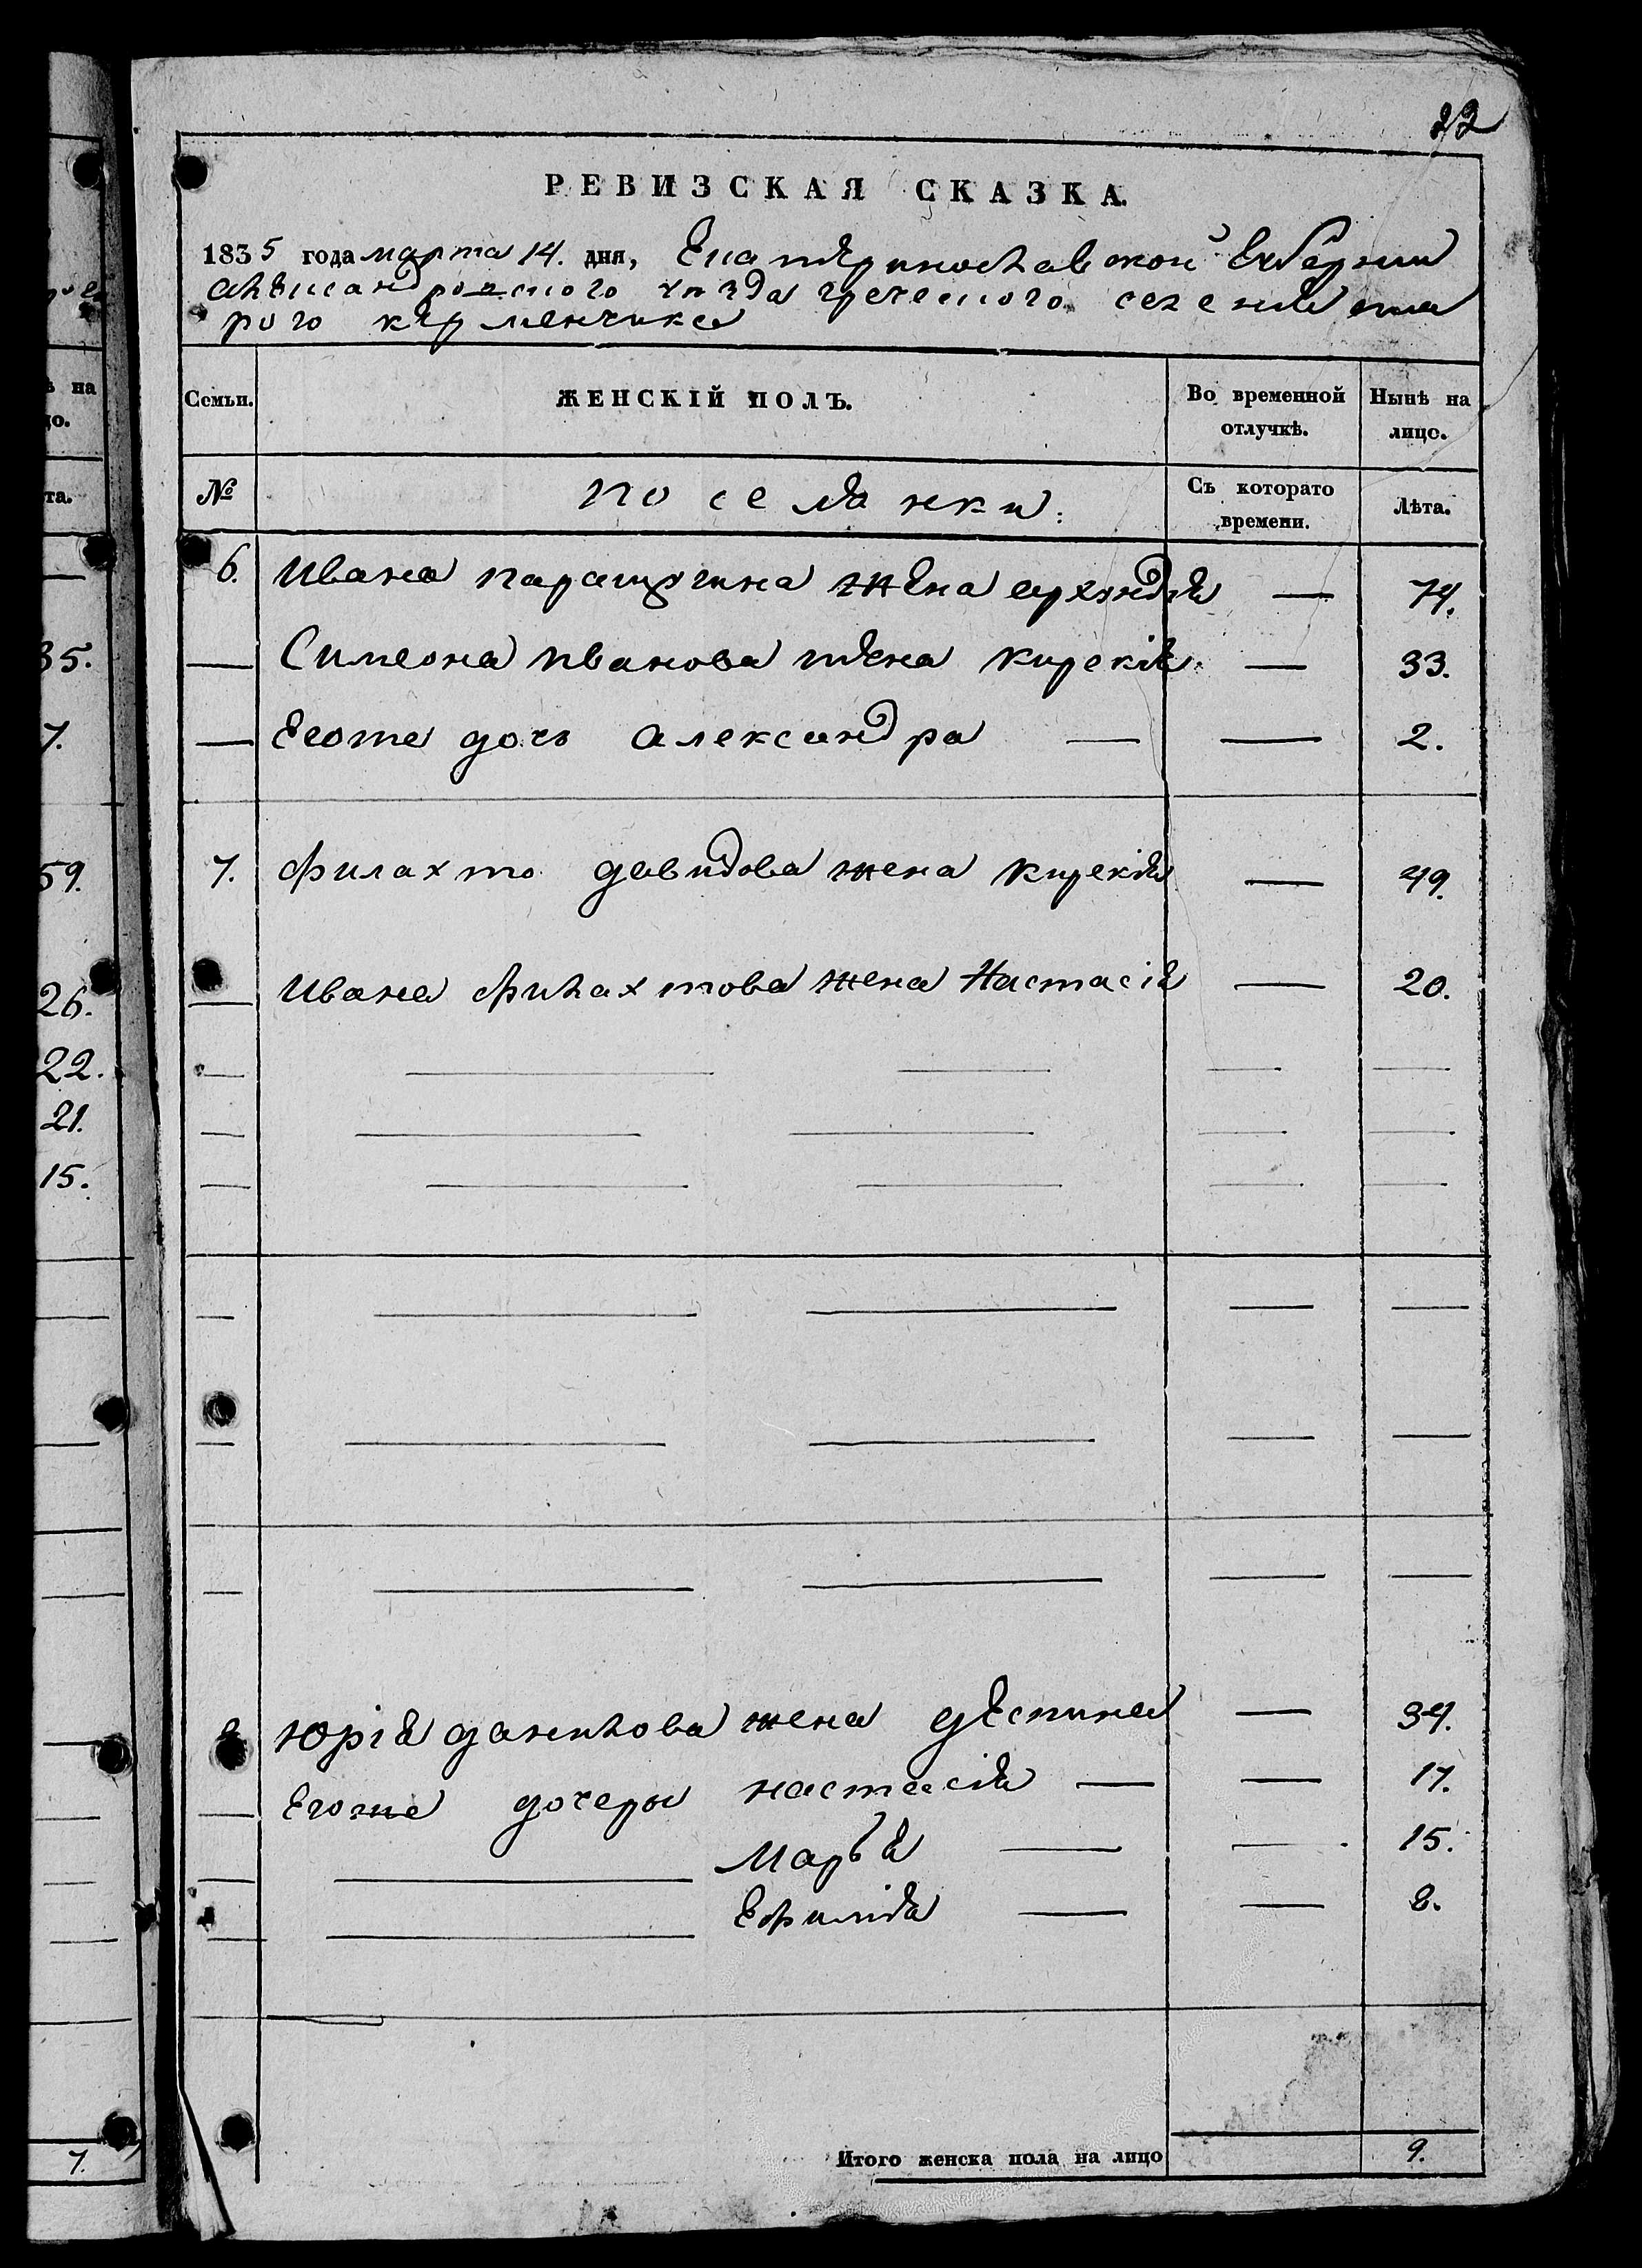 22
РЕВИЗСКАЯ СКАЗКА.
1835 года марта 14. дня, Екатеринославской Губернии
александровского уезда греческого селения ста
рого керменчика
ѣ на
Семьи. ЖЕНСКІЙ ПОЛЪ. Во временной отлучкѣ. Нынѣ на лицо.
та.
№ поселянки. Съ котораго времени. Лѣта.
6. Ивана паращукина жена архондѣя — 74.
35. — Симеона иванова жена кирекія — 33.
7. — Егоже дочь александра — — 2.
59. 7. филахто давидова жена кирекія — 49.
26. — Ивана филахтова жена Настасія — 20.
22. — — — — —
21. — — — — —
15. — — — — —
— — — — —
— — — — —
— — — — —
8 юрія данилова жена деспина — 34.
— Егоже дочеры настасія — — 17.
— — Марья — — 15.
— — Ефимія — — 8.
7. Итого женска пола на лицо 9.